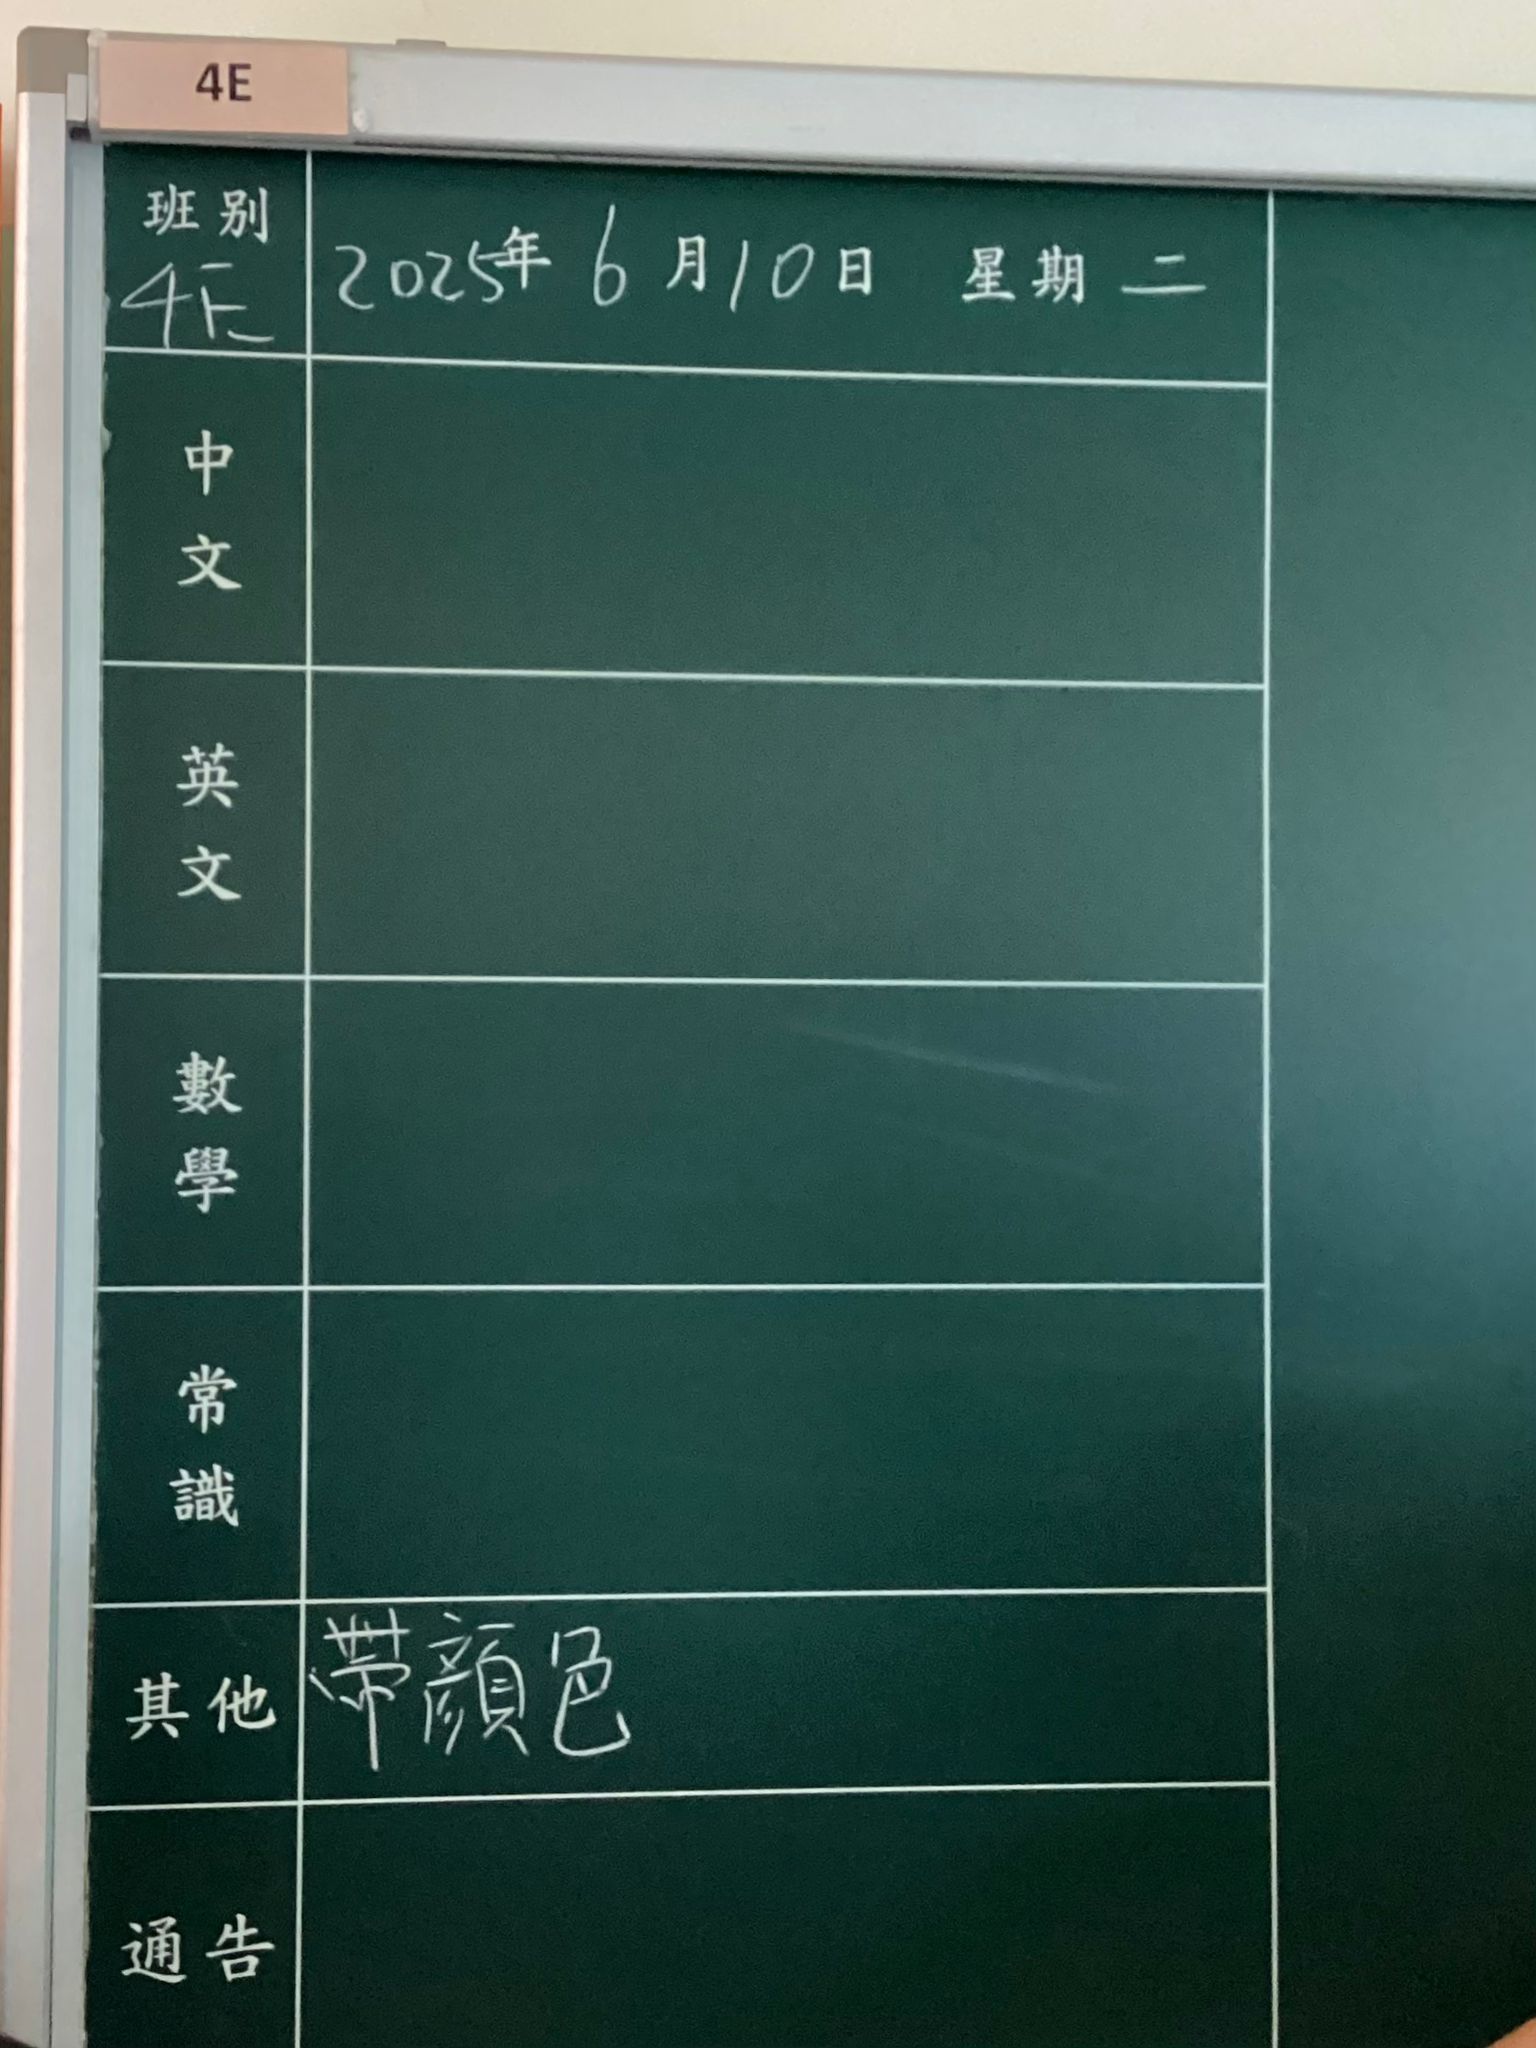 4E
班別
4E
2025年 6月10日 星期二
中
文
英
文
數
學
常
識
其他
帶顏色
通告